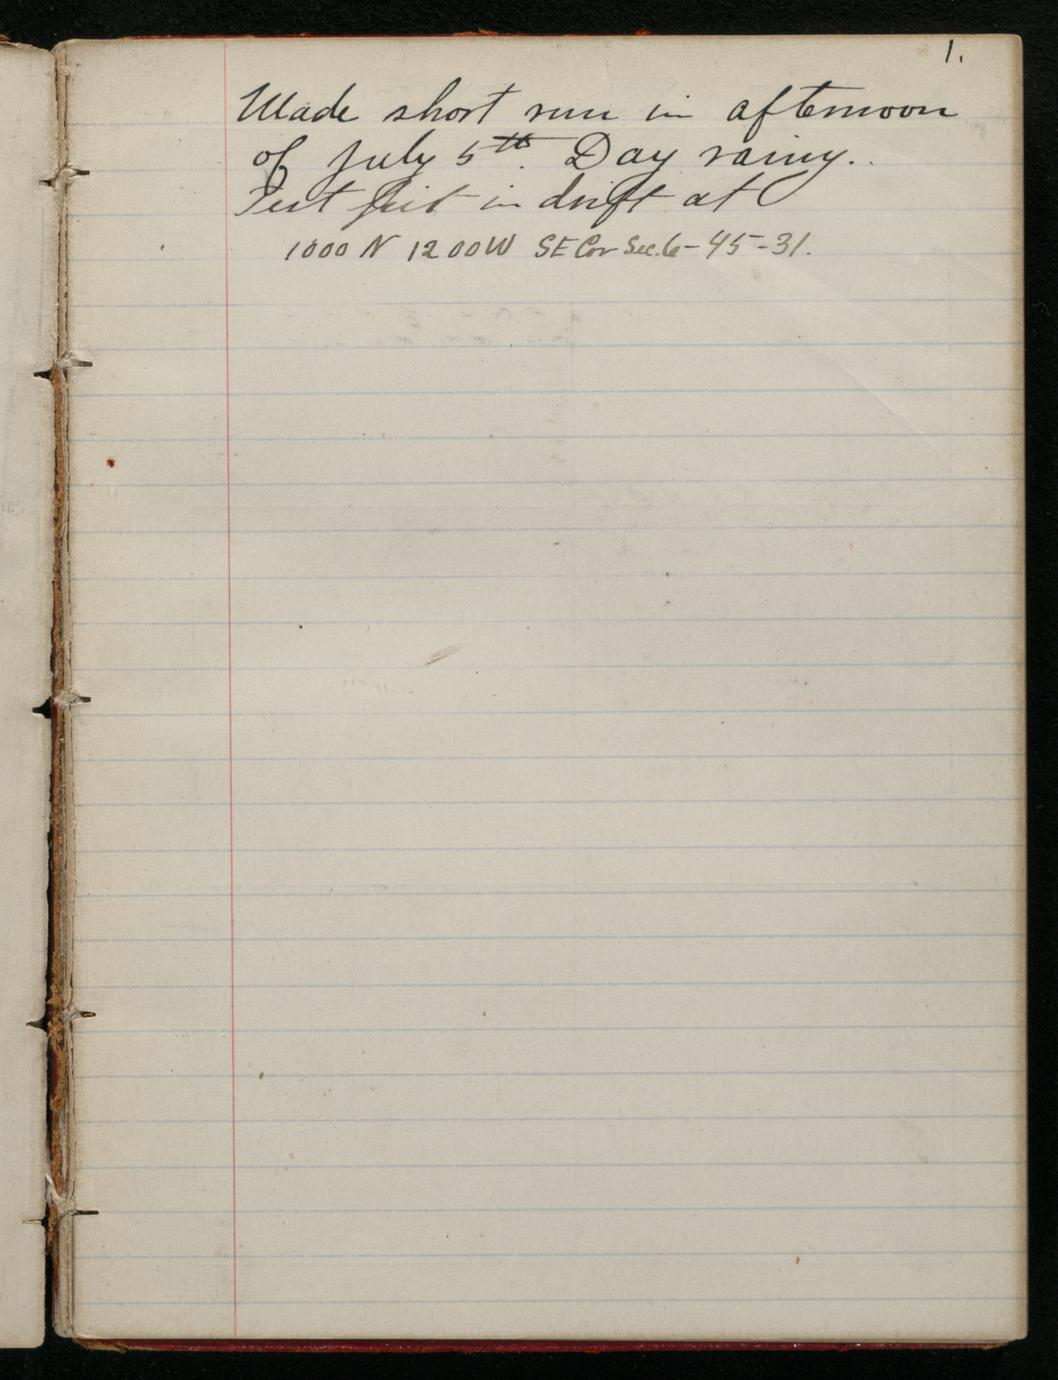 1.
Made short run in afternoon
of July 5th. Day rainy.
Test pit in drift at
1000 N 1200 W SE Cor Sec. 6-45-31.